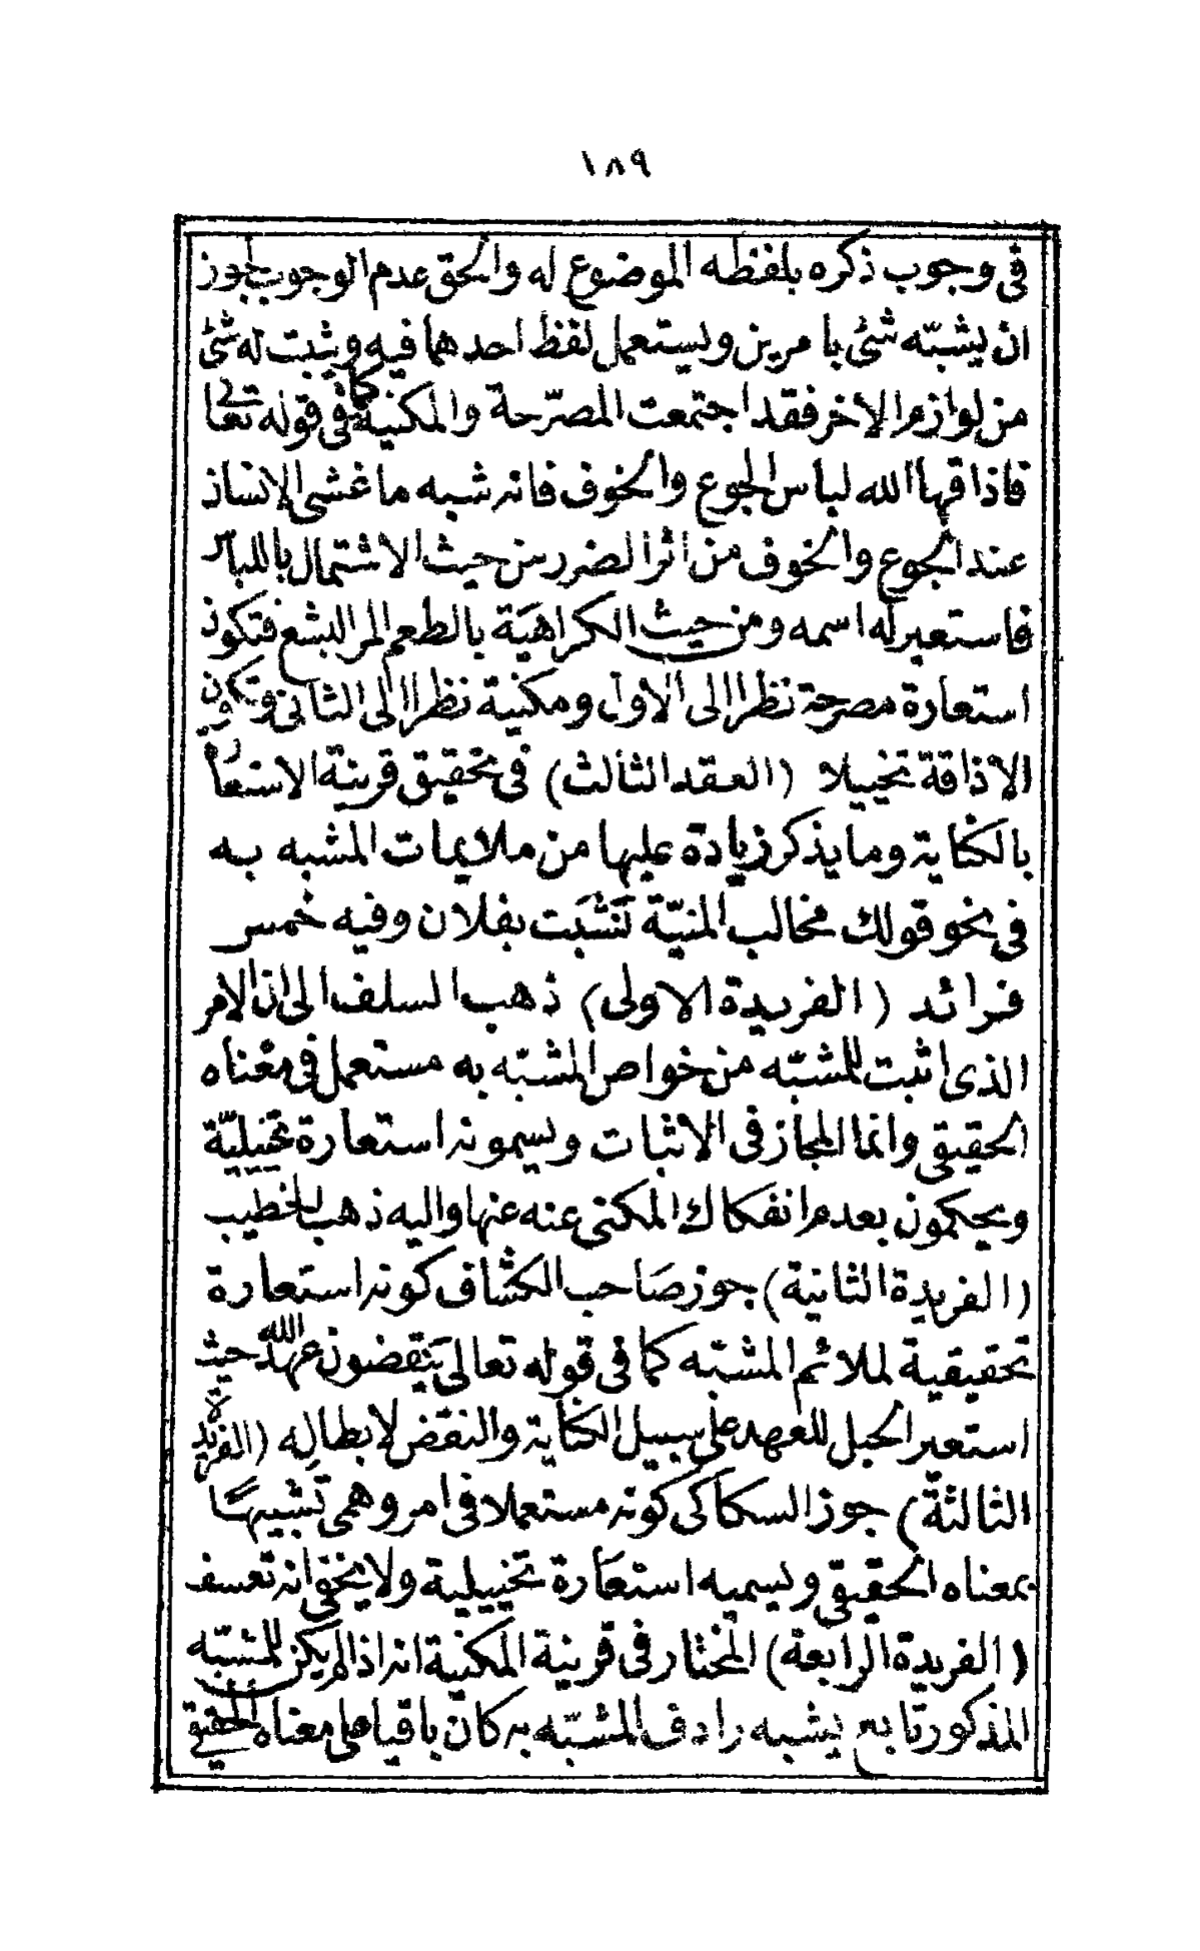 ١٨٩
فى وجوب ذكره بلفظه الموضوع له والحق عدم الوجوب لجوز
ان يشبّه شئ بامرين ويستعمل لفظ احدهما فيه ويثبت له شئ
من لوازم الاخر فقد اجتمعت المصرّحة والمكنية كما فى قوله تعالى
فاذاقها الله لباس الجوع والخوف فانه شبه ما غشى الانسان
عند الجوع والخوف من اثر الضرر من حيث الاشتمال باللباس
فاستعير له اسمه ومن حيث الكراهيَة بالطعم المر البشع فتكون
استعارة مصرحة نظرا الى الاول ومكنية نظرا الى الثانى وتكون
الاذاقة تخييلا (العقد الثالث) فى تحقيق قرينة الاستعارة
بالكناية وما يذكر زيادة عليها من ملايمات المشبه به
فى نحو قولك مخالب المنيّة نَشَبَت بفلان وفيه خمس
فرائد (الفريدة الاولى) ذهب السلف الى ان الامر
الذى اثبت للمشبّه من خواص المشبّه به مستعمل فى معناه
الحقيقى وانما المجاز فى الاثبات ويسمونه استعارة تخييليّة
ويحكمون بعدم انفكاك المكنى عنه عنها واليه ذهب الخطيب
(الفريدة الثانية) جوز صَاحب الكشاف كونه استعارة
تحقيقية لملائم المشبّه كما فى قوله تعالى يَنقضون عهد الله حيث
استعير الحبل للعهد على سبيل الكناية والنقض لابطاله (الفريدة
الثالثة) جوز السكاكى كونه مستعملا فى امر وهمى تشبيهًا
بمعناه الحقيقى ويسميه استعَارة تخييلية ولا يخفى انه تعسف
(الفريدة الرابعة) المختار فى قرينة المكنية انه اذا لم يكن للمشبّه
المذكور تابع يشبه رادف المشبّه به كان باقيا على معناه الحقيقى